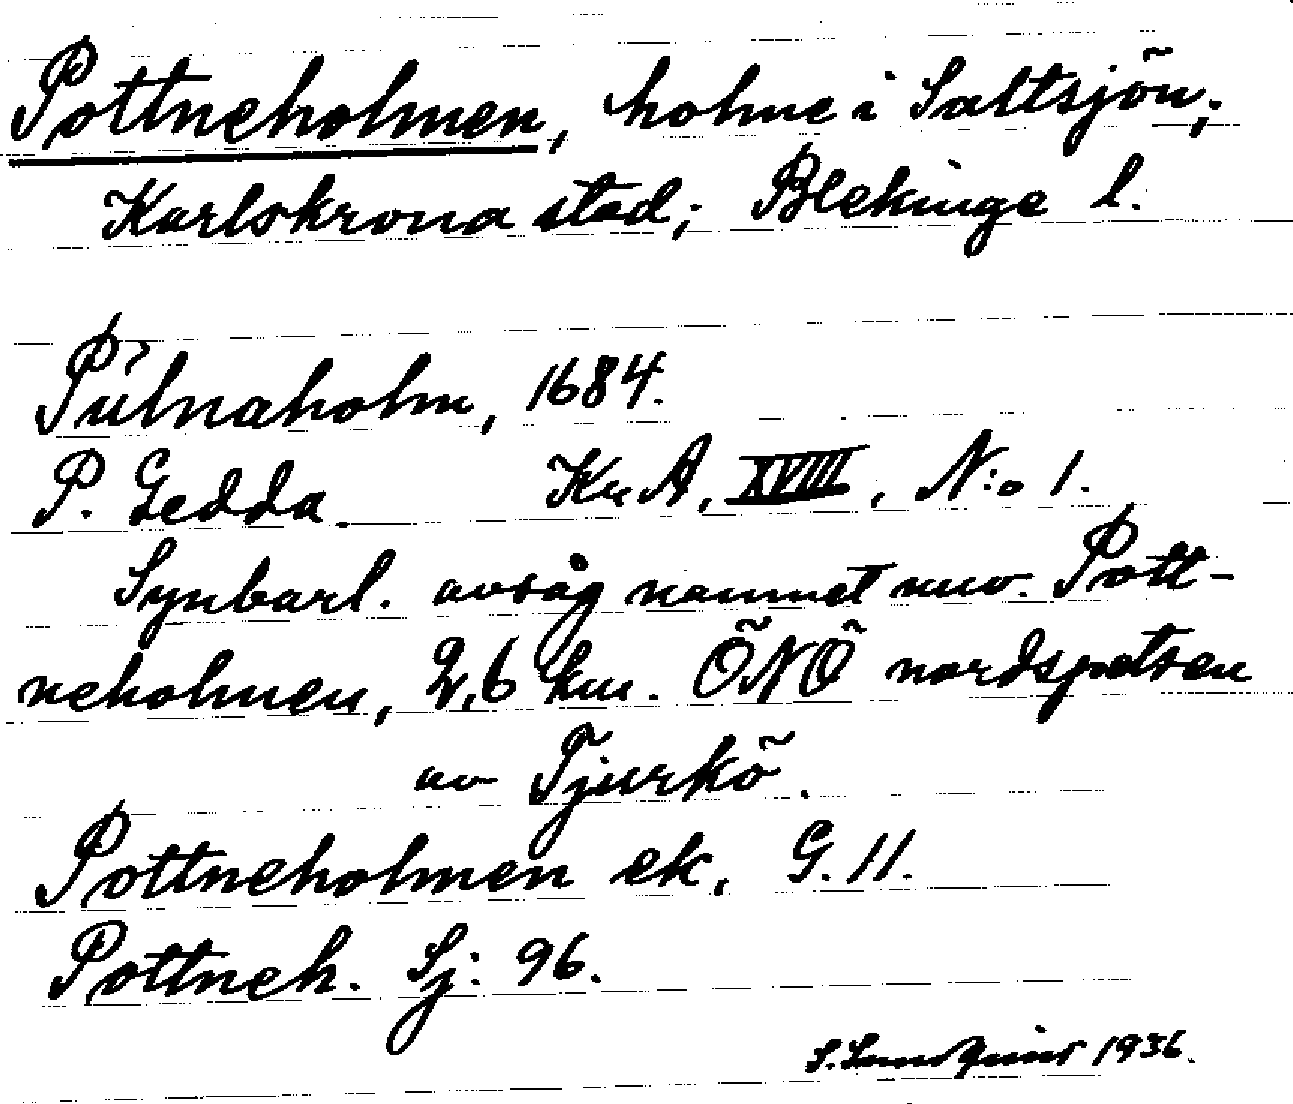 Pottneholmen, holme i Saltsjön;
Karlskrona stad; Blekinge l.
Pülnaholm, 1684.
P. Gedda. KrA, XVIII, N:o 1.
Synbarl. avsåg namnet nuv. Pott-
neholmen, 2,6 km. ÖNÖ nordspetsen
av Tjurkö.
Pottneholmen ek, G. 11.
Pottneh. Sj: 96.
S. 1936.